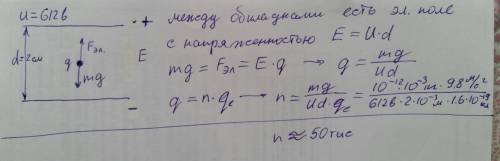 U = 612в
+
между обкладками есть эл. поле
с напряженностью E = U·d
d=2см
Fэл.
q
mg
E
mg = Fэл = E·q → q = mg/Ud
q = n·qe → n = mg/Ud·qe = 10⁻¹²·10⁻³кг·9.8м/с²/612в·2·10⁻³м·1.6·10⁻¹⁹кл
-
n ≈ 50 тыс